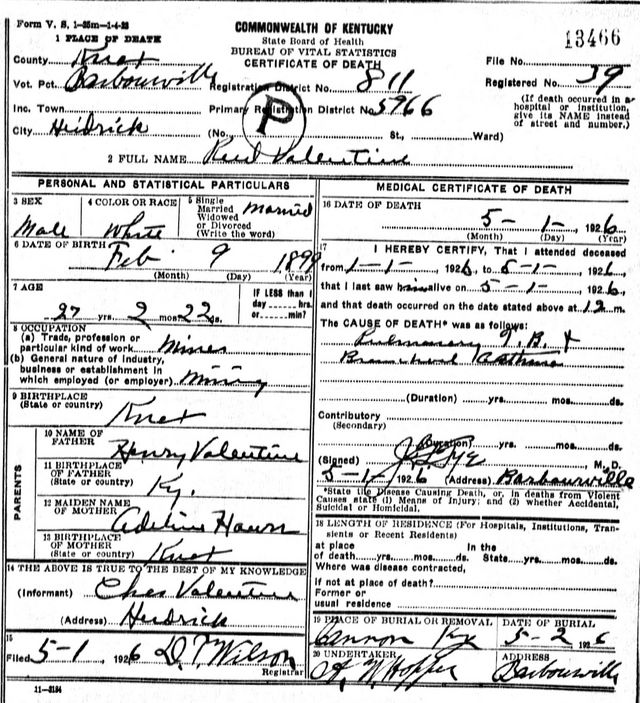 Form V. S. 1-35m-1-4-23
COMMONWEALTH OF KENTUCKY
State Board of Health
BUREAU OF VITAL STATISTICS
CERTIFICATE OF DEATH
13466
1 PLACE OF DEATH
County Knox
File No.
Vot. Pct. Barbourville
Registration District No. 811
Registered No. 39
Inc. Town
Primary Registration District No. 5966
(If death occurred in a hospital or institution, give its NAME instead of street and number.)
City Heidrick
(No. St., Ward)
P
2 FULL NAME Reed Valentine
PERSONAL AND STATISTICAL PARTICULARS
3 SEX Male
4 COLOR OR RACE White
5 Single Married Widowed or Divorced (Write the word) Married
6 DATE OF BIRTH Feb 9 1899
(Month) (Day) (Year)
7 AGE
27 yrs. 2 mos. 22 ds.
IF LESS than 1 day hrs. or min?
8 OCCUPATION
(a) Trade, profession or particular kind of work Miner
(b) General nature of Industry, business or establishment in which employed (or employer) Mining
9 BIRTHPLACE
(State or country) Knox
PARENTS
10 NAME OF FATHER Henry Valentine
11 BIRTHPLACE OF FATHER (State or country) Ky.
12 MAIDEN NAME OF MOTHER Adeline
13 BIRTHPLACE OF MOTHER (State or country) Knox
14 THE ABOVE IS TRUE TO THE BEST OF MY KNOWLEDGE
(Informant) Chas Valentine
(Address) Heidrick
15
Filed 5-1 1926 D. T. Wilson
Registrar
11-3184
MEDICAL CERTIFICATE OF DEATH
16 DATE OF DEATH
5-1- 1926
(Month) (Day) (Year)
17 I HEREBY CERTIFY, That I attended deceased
from 1-1- 1926, to 5-1- 1926,
that I last saw him alive on 5-1- 1926,
and that death occurred on the date stated above at 12 m.
The CAUSE OF DEATH* was as follows:
Pulmonary T. B. +
Bronchial Asthma
(Duration) yrs. mos. ds.
Contributory
(Secondary)
(Duration) yrs. mos. ds.
(Signed) M. D.
5-1- 1926 (Address) Barbourville
*State the Disease Causing Death, or, in deaths from Violent
Causes state (1) Means of Injury; and (2) whether Accidental,
Suicidal or Homicidal.
18 LENGTH OF RESIDENCE (For Hospitals, Institutions, Transients or Recent Residents)
at place of death yrs. mos. ds. In the State yrs. mos. ds.
Where was disease contracted,
if not at place of death?
Former or usual residence
19 PLACE OF BURIAL OR REMOVAL Cannon Ky
DATE OF BURIAL 5-2 1926
20 UNDERTAKER A. W. Hopper
ADDRESS Barbourville